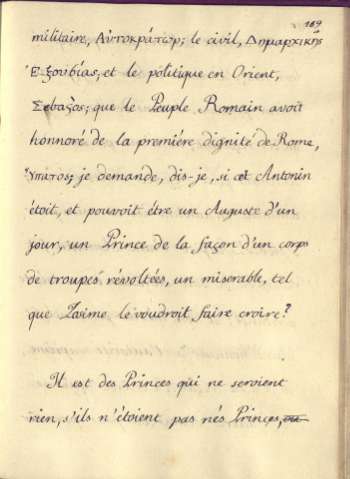 169
militaire, Αὐτοκράτωρ; le civil, Δημαρχικῆς
Ἐξουσίας; et le politique en Orient,
Σεβαϛος; que le Peuple Romain avoit
honnoré de la premiére dignité de Rome,
ὕπατος; je demande, dis-je, si cet Antonin
étoit, et pouvoit étre un Auguste d'un
jour, un Prince de la façon d'un corps
de troupes révoltées, un miserable, tel
que Zosime le voudroit faire croire?
Il est des Princes qui ne seroient
rien, s'ils n'étoient pas nés Princes,